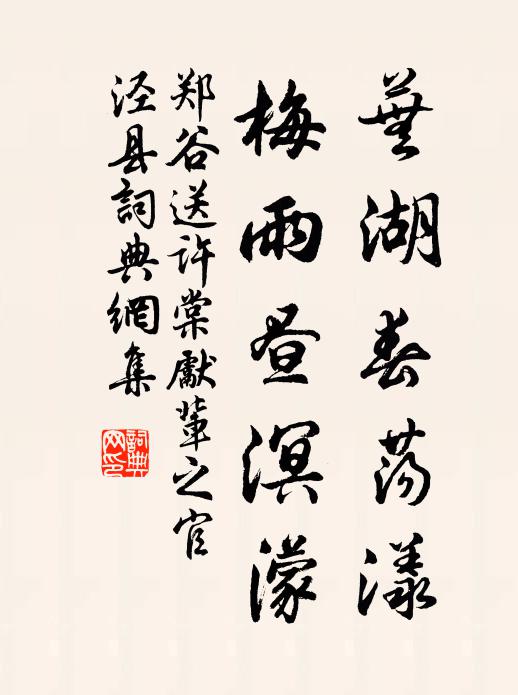 蕪湖春荡漾
梅雨昼溟濛
郑谷送许棠獻輩之官
泾县詞典網集
詞典网印